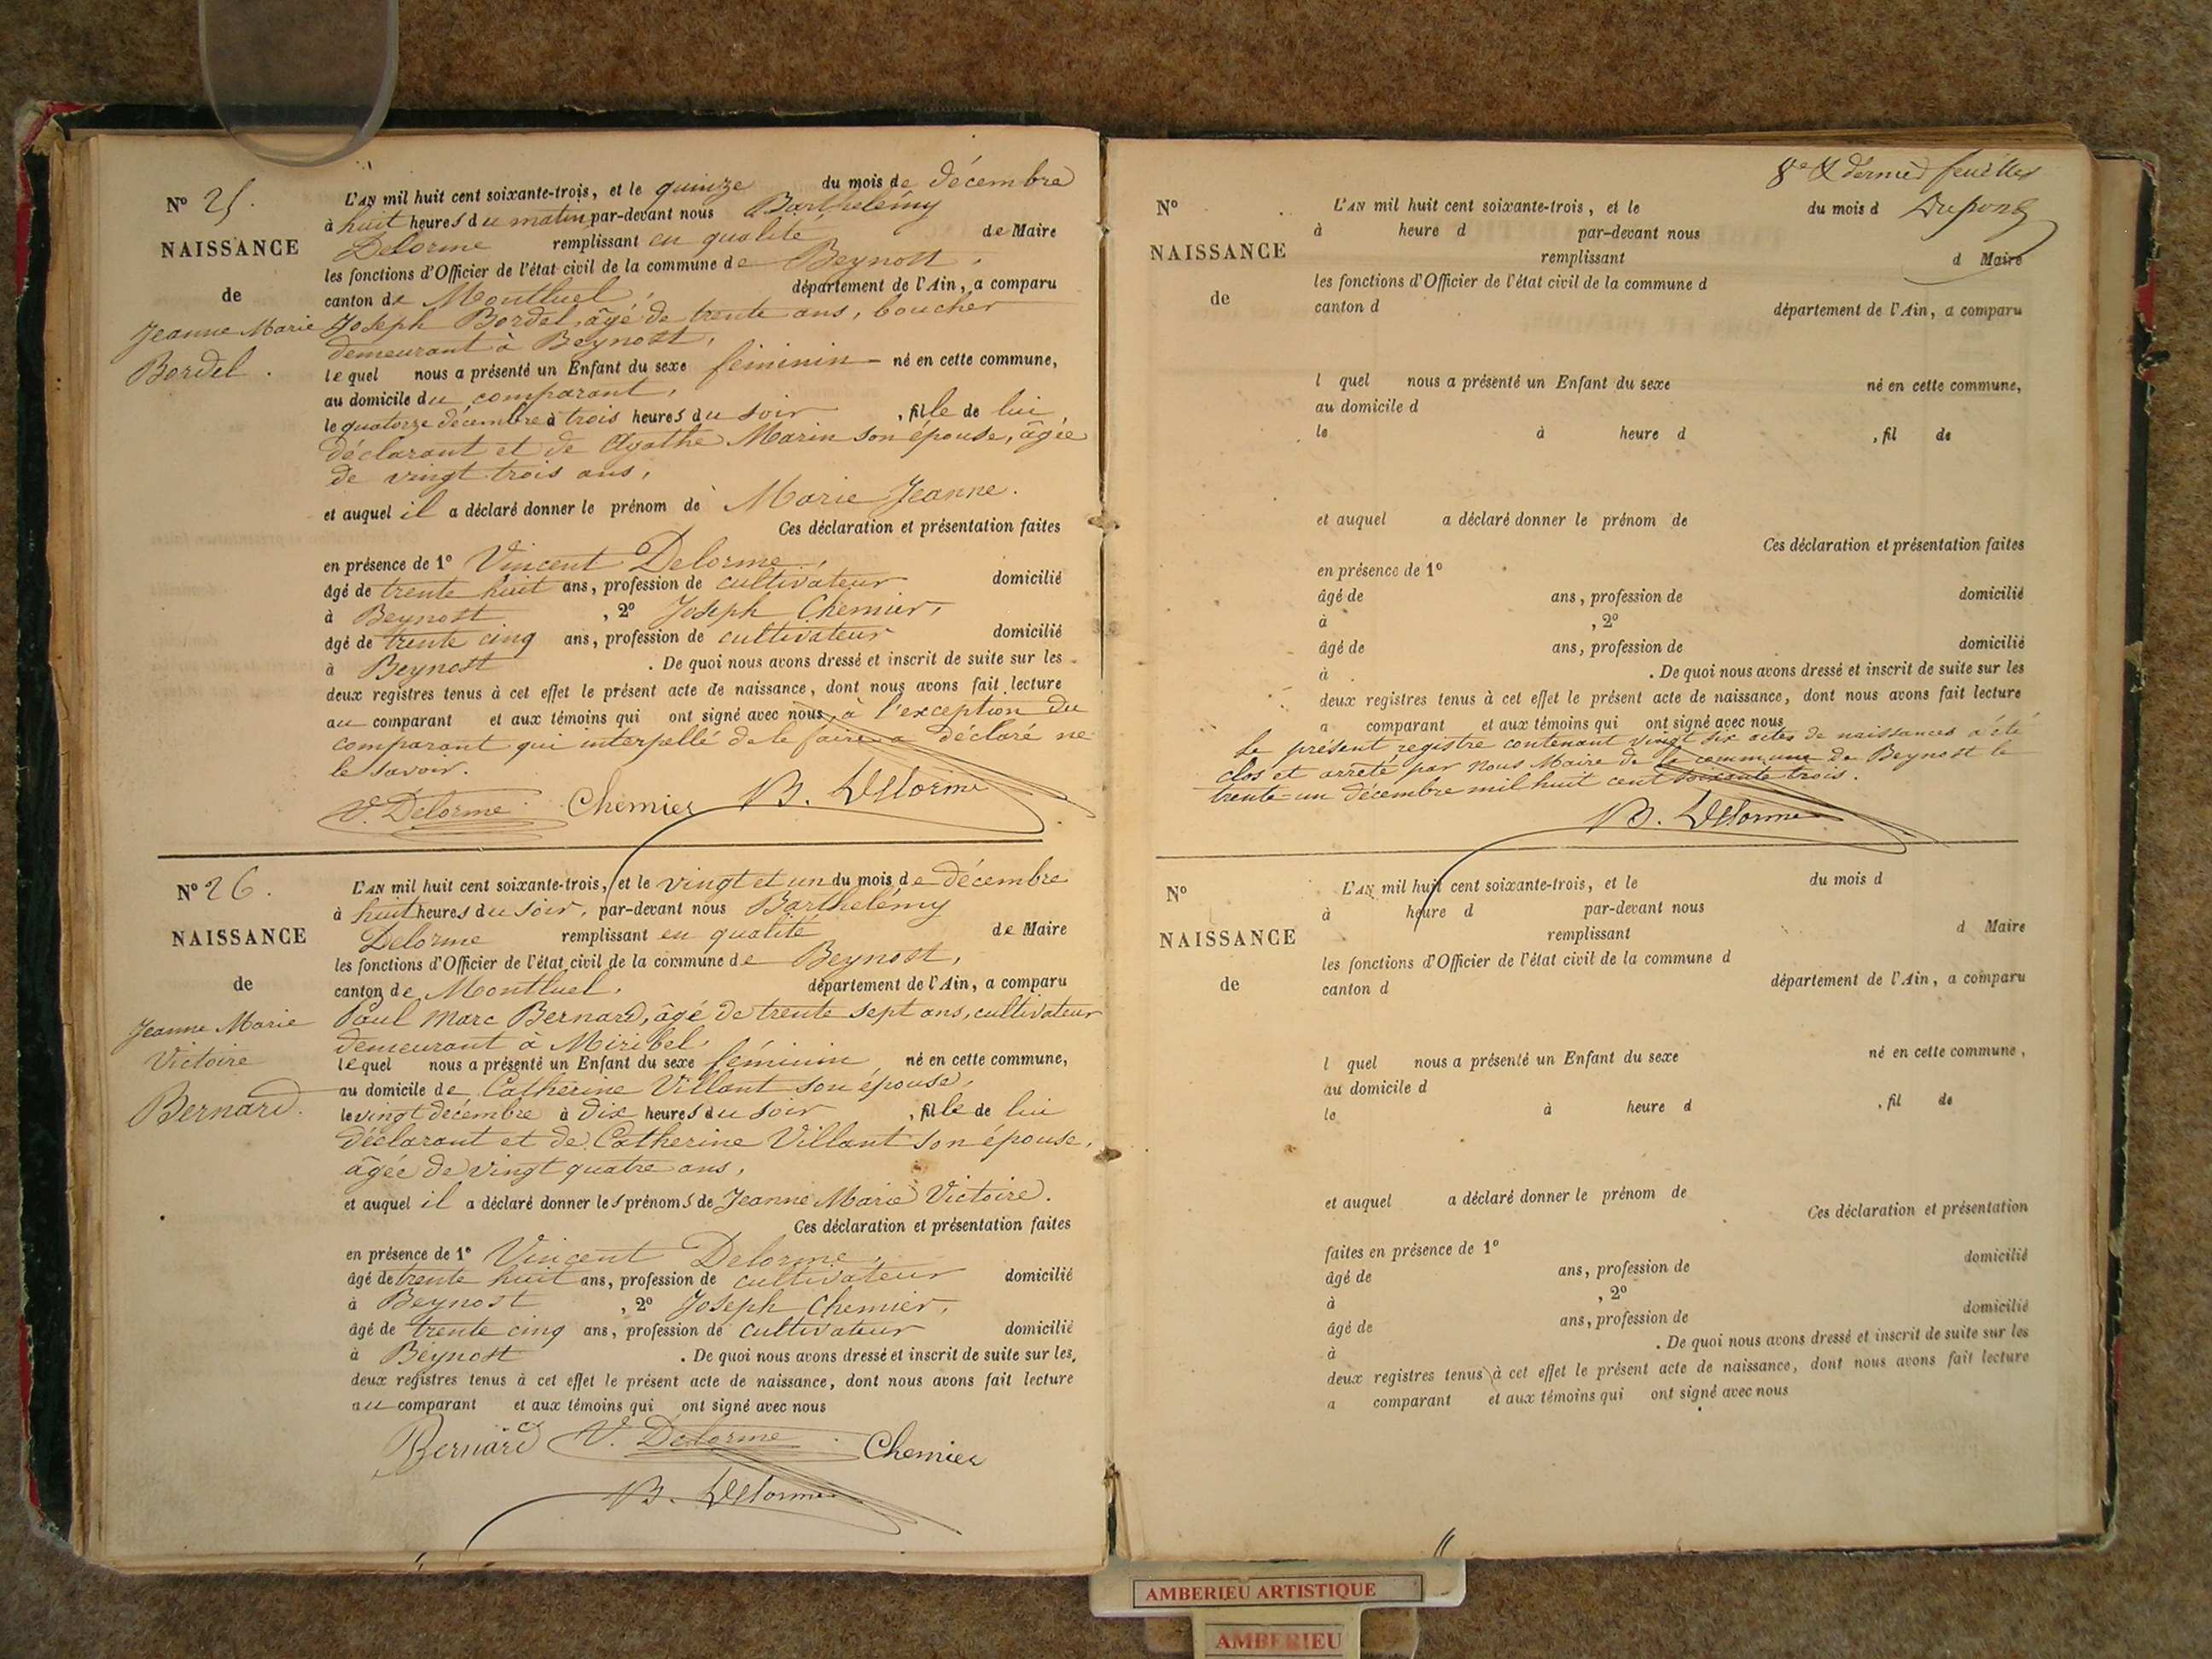 N° 25.
NAISSANCE
de
Jeanne Marie
Bordel.
L'AN mil huit cent soixante-trois, et le quinze du mois de décembre
à huit heures du matin par-devant nous Barthelémy
Delorme remplissant en qualité de Maire
les fonctions d'Officier de l'état civil de la commune de Beynost,
canton de Montluel, département de l'Ain, a comparu
Joseph Bordel, âgé de trente ans, boucher
demeurant à Beynost,
lequel nous a présenté un Enfant du sexe féminin né en cette commune,
au domicile du comparant,
le quatorze décembre à trois heures du soir, fille de lui
déclarant et de Agathe Marin son épouse, âgée
de vingt trois ans,
et auquel il a déclaré donner le prénom de Marie Jeanne.
Ces déclaration et présentation faites
en présence de 1° Vincent Delorme,
âgé de trente huit ans, profession de cultivateur domicilié
à Beynost, 2° Joseph Chemier,
âgé de trente cinq ans, profession de cultivateur domicilié
à Beynost. De quoi nous avons dressé et inscrit de suite sur les
deux registres tenus à cet effet le présent acte de naissance, dont nous avons fait lecture
au comparant et aux témoins qui ont signé avec nous, à l'exception du
comparant qui interpellé de le faire a déclaré ne
le savoir.
V. Delorme Chemier B. Delorme
N° 26.
NAISSANCE
de
Jeanne Marie
Victoire
Bernard.
L'AN mil huit cent soixante-trois, et le vingt et un du mois de décembre
à huit heures du soir, par-devant nous Barthelémy
Delorme remplissant en qualité de Maire
les fonctions d'Officier de l'état civil de la commune de Beynost,
canton de Montluel, département de l'Ain, a comparu
Paul Marc Bernard, âgé de trente sept ans, cultivateur
demeurant à Miribel,
lequel nous a présenté un Enfant du sexe féminin né en cette commune,
au domicile de Catherine Villant son épouse,
le vingt décembre à dix heures du soir, fille de lui
déclarant et de Catherine Villant son épouse,
âgée de vingt quatre ans,
et auquel il a déclaré donner les prénoms de Jeanne Marie Victoire.
Ces déclaration et présentation faites
en présence de 1° Vincent Delorme,
âgé de trente huit ans, profession de cultivateur domicilié
à Beynost, 2° Joseph Chemier,
âgé de trente cinq ans, profession de cultivateur domicilié
à Beynost. De quoi nous avons dressé et inscrit de suite sur les
deux registres tenus à cet effet le présent acte de naissance, dont nous avons fait lecture
au comparant et aux témoins qui ont signé avec nous
Bernard V. Delorme Chemier
B. Delorme
8e & dernier feuillet
Dupont
N°
NAISSANCE
de
L'AN mil huit cent soixante-trois, et le du mois d
à heure d par-devant nous
remplissant d Maire
les fonctions d'Officier de l'état civil de la commune d
canton d département de l'Ain, a comparu
l quel nous a présenté un Enfant du sexe né en cette commune,
au domicile d
le à heure d , fil de
et auquel a déclaré donner le prénom de
Ces déclaration et présentation faites
en présence de 1°
âgé de ans, profession de domicilié
à , 2°
âgé de ans, profession de domicilié
à . De quoi nous avons dressé et inscrit de suite sur les
deux registres tenus à cet effet le présent acte de naissance, dont nous avons fait lecture
a comparant et aux témoins qui ont signé avec nous
Le présent registre contenant vingt six actes de naissances a été
clos et arrêté par Nous Maire de la commune de Beynost le
trente-un décembre mil huit cent soixante trois.
B. Delorme
N°
NAISSANCE
de
L'AN mil huit cent soixante-trois, et le du mois d
à heure d par-devant nous
remplissant d Maire
les fonctions d'Officier de l'état civil de la commune d
canton d département de l'Ain, a comparu
l quel nous a présenté un Enfant du sexe né en cette commune,
au domicile d
le à heure d , fil de
et auquel a déclaré donner le prénom de
Ces déclaration et présentation
faites en présence de 1° domicilié
âgé de ans, profession de
à , 2°
âgé de ans, profession de domicilié
à . De quoi nous avons dressé et inscrit de suite sur les
deux registres tenus à cet effet le présent acte de naissance, dont nous avons fait lecture
a comparant et aux témoins qui ont signé avec nous
AMBERIEU ARTISTIQUE
AMBERIEU